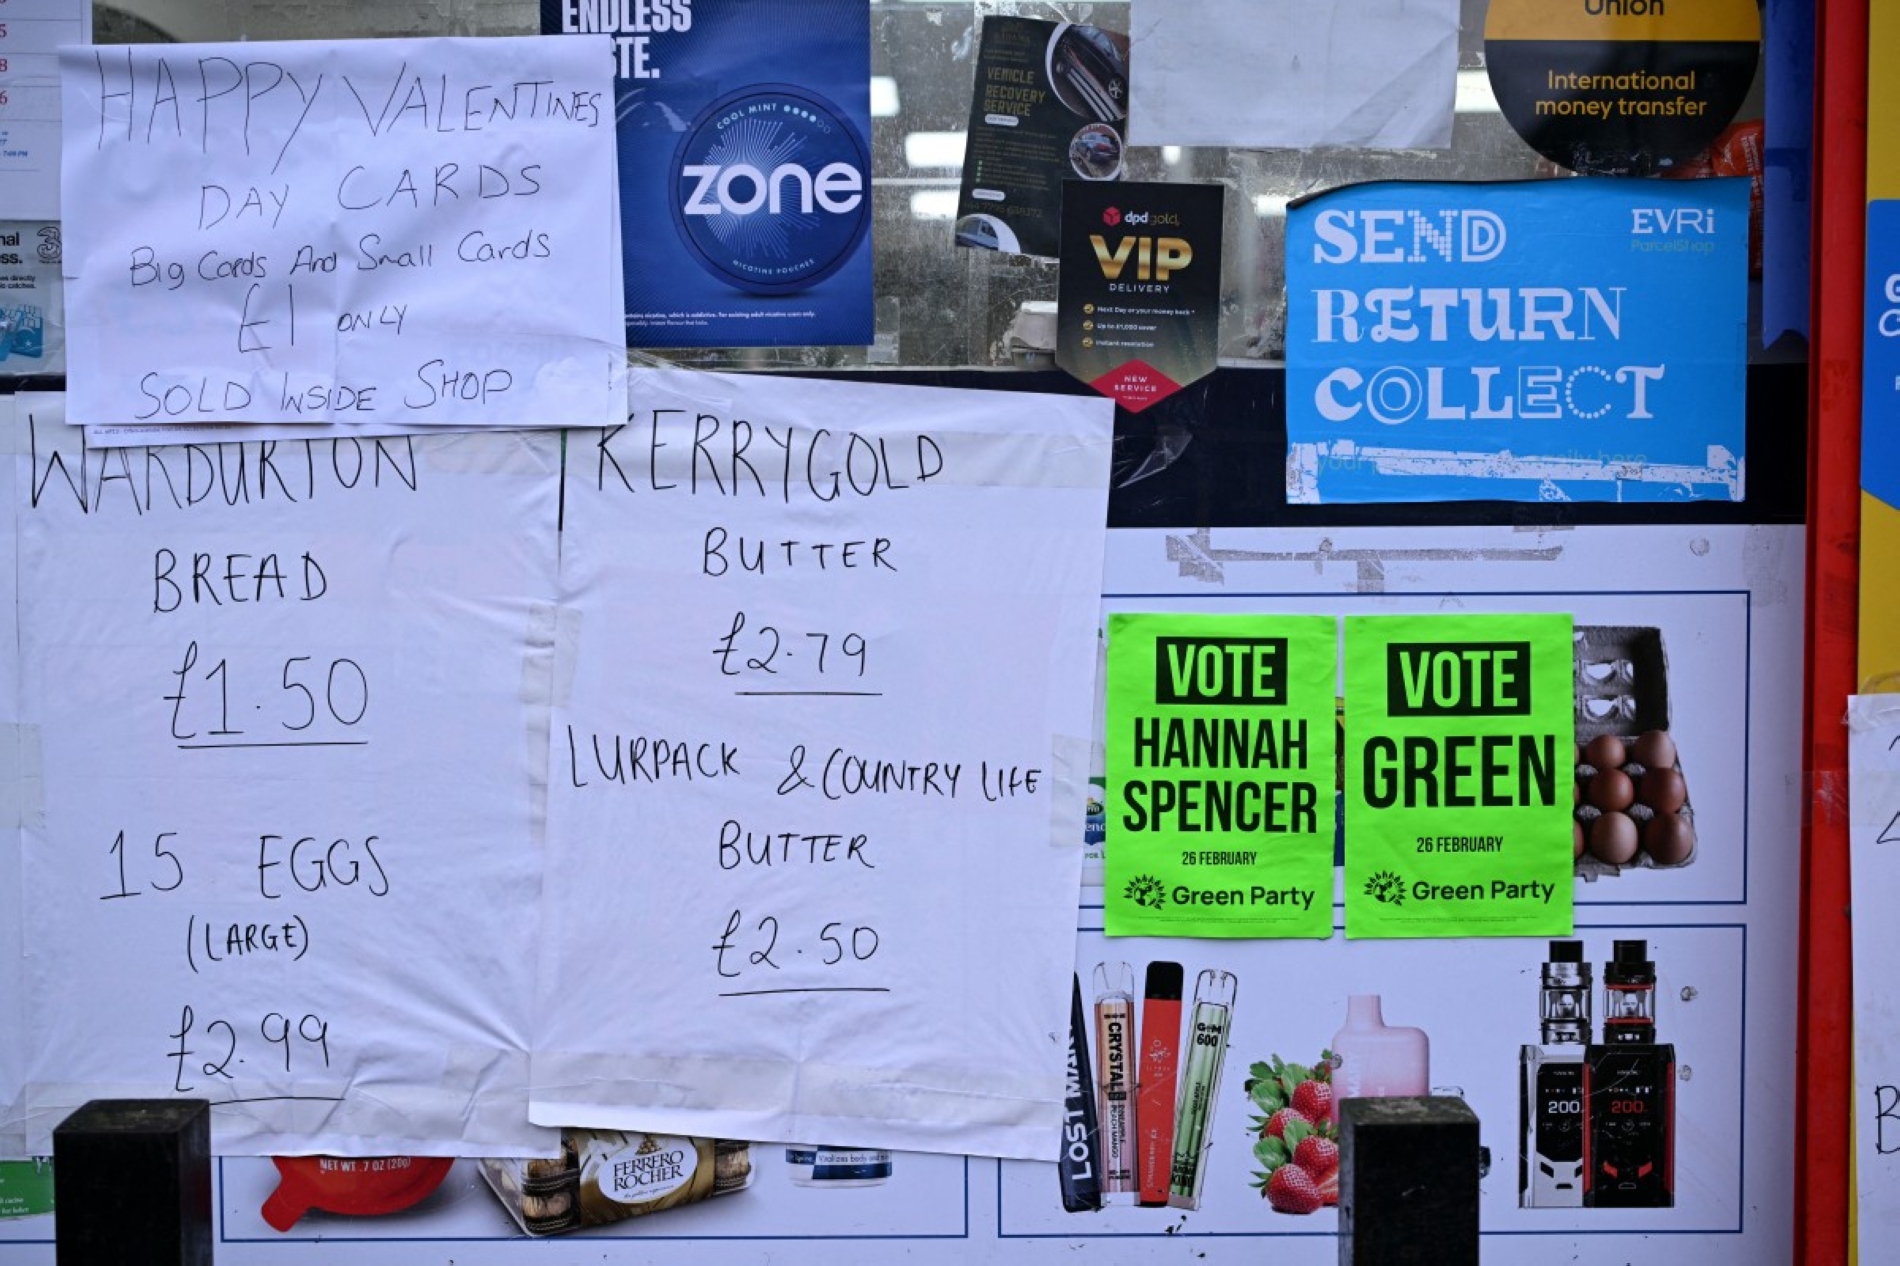 HAPPY VALENTINES
DAY CARDS
Big Cards And Small Cards
£1 ONLY
SOLD INSIDE SHOP
WARDURTON
BREAD
£1.50
15 EGGS
(LARGE)
£2.99
KERRYGOLD
BUTTER
£2.79
LURPACK & COUNTRY LIFE
BUTTER
£2.50
ENDLESS
COOL MINT
zone
NICOTINE POUCHES
VEHICLE
RECOVERY
SERVICE
dpd gold
VIP
DELIVERY
Next Day or your money back *
Up to £1,000 cover
Instant resolution
NEW
SERVICE
Union
International
money transfer
SEND
RETURN
COLLECT
EVRi
ParcelShop
VOTE
HANNAH
SPENCER
26 FEBRUARY
Green Party
VOTE
GREEN
26 FEBRUARY
Green Party
LOST MA
CRYSTAL
GEM
600
200
200
NET WT .7 OZ (20g)
FERRERO
ROCHER
3